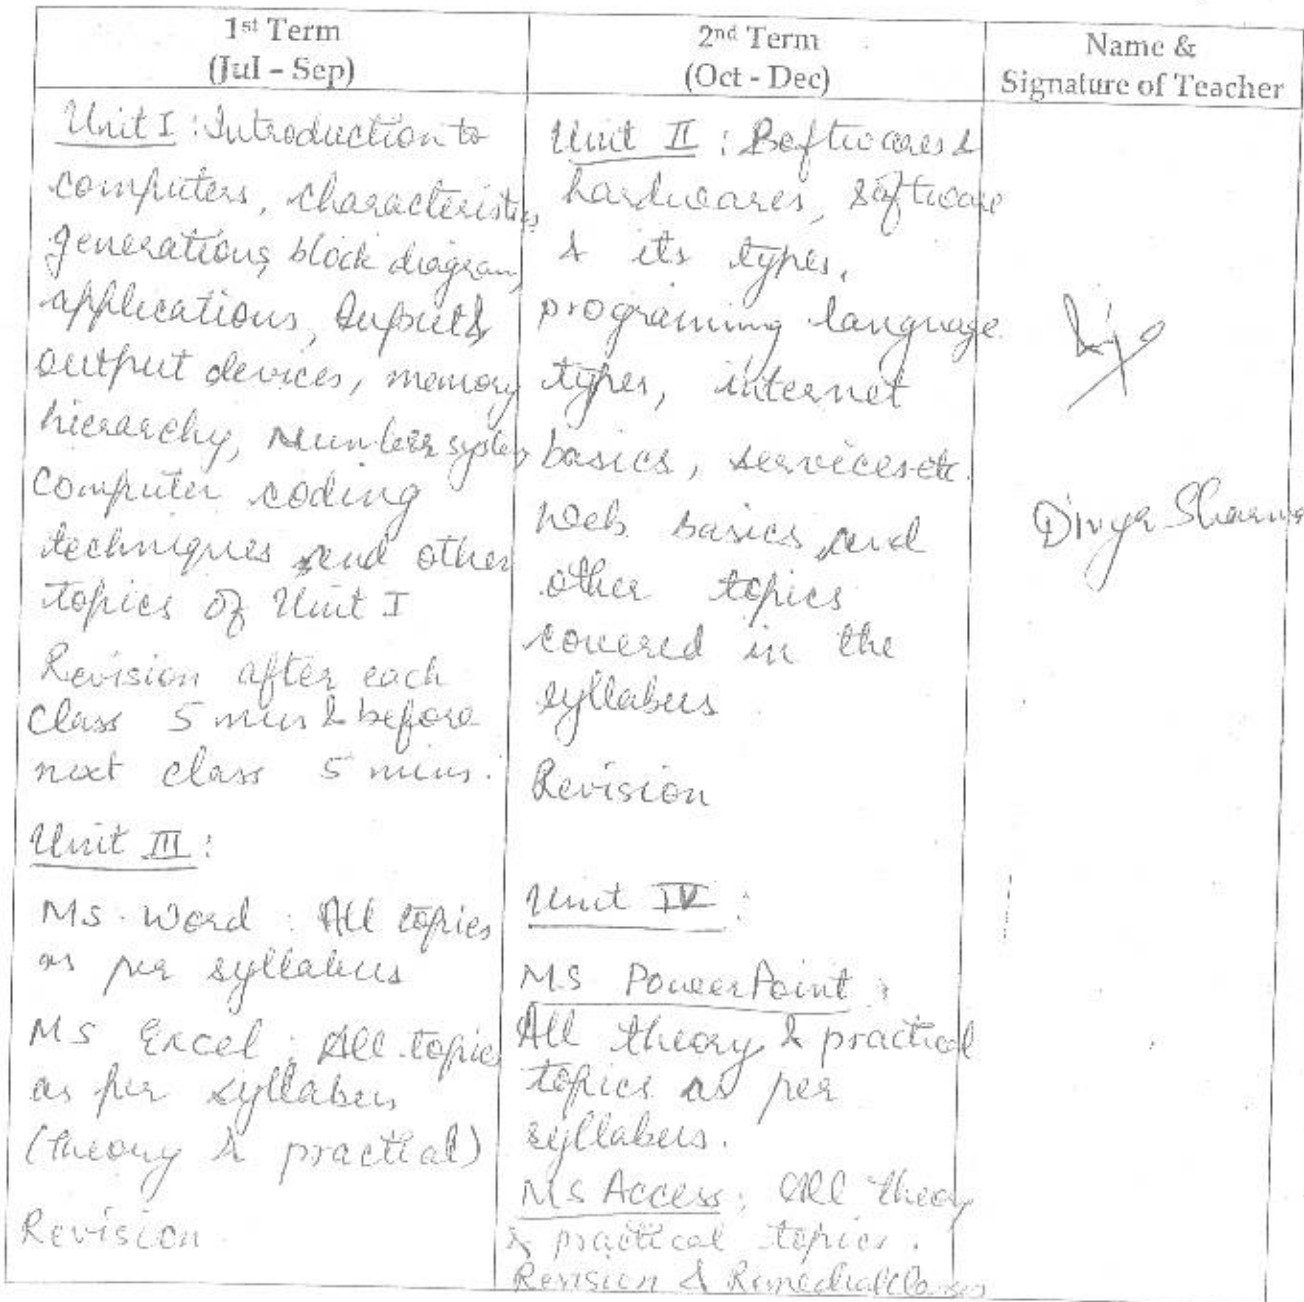 1st Term
(Jul - Sep)
Unit I : Introduction to
computers, characteristics,
generations, block diagram,
applications, Input &
output devices, memory
hierarchy, Number system,
Computer coding
techniques and other
topics of Unit I
Revision after each
class 5 mins & before
next class 5 mins.
Unit III :
MS Word : All topics
as per syllabus
MS Excel : All topics
as per syllabus
(theory & practial)
Revision
2nd Term
(Oct - Dec)
Unit II : Softwares &
hardwares, software
& its types,
programing language
types, internet
basics, services etc.
Web basics and
other topics
covered in the
syllabus
Revision
Unit IV :
MS PowerPoint :
All theory & practical
topics as per
syllabus.
MS Access : All theory
& practical topics.
Revision & Remedial Classes
Name &
Signature of Teacher
Divya Sharma